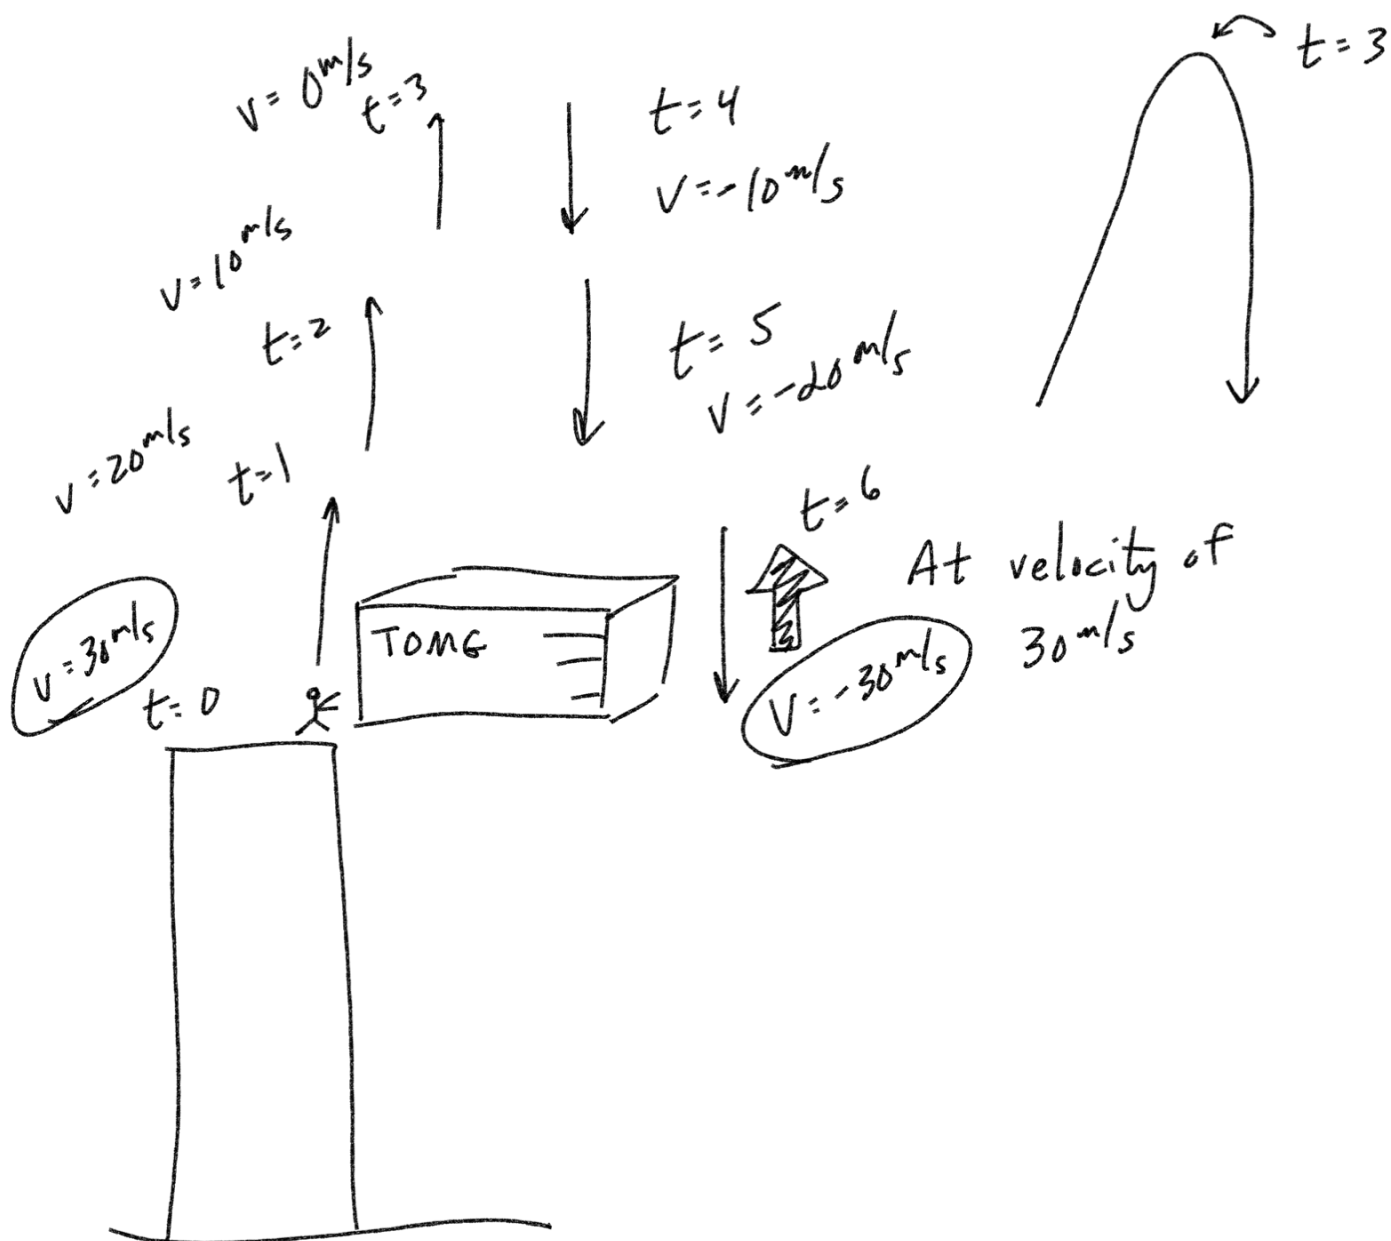 v = 0 m/s
t = 3
t = 4
v = -10 m/s
t = 3
v = 10 m/s
t = 2
t = 5
v = -20 m/s
v = 20 m/s
t = 1
t = 6
At velocity of
30 m/s
v = 30 m/s
t = 0
TOME
v = -30 m/s